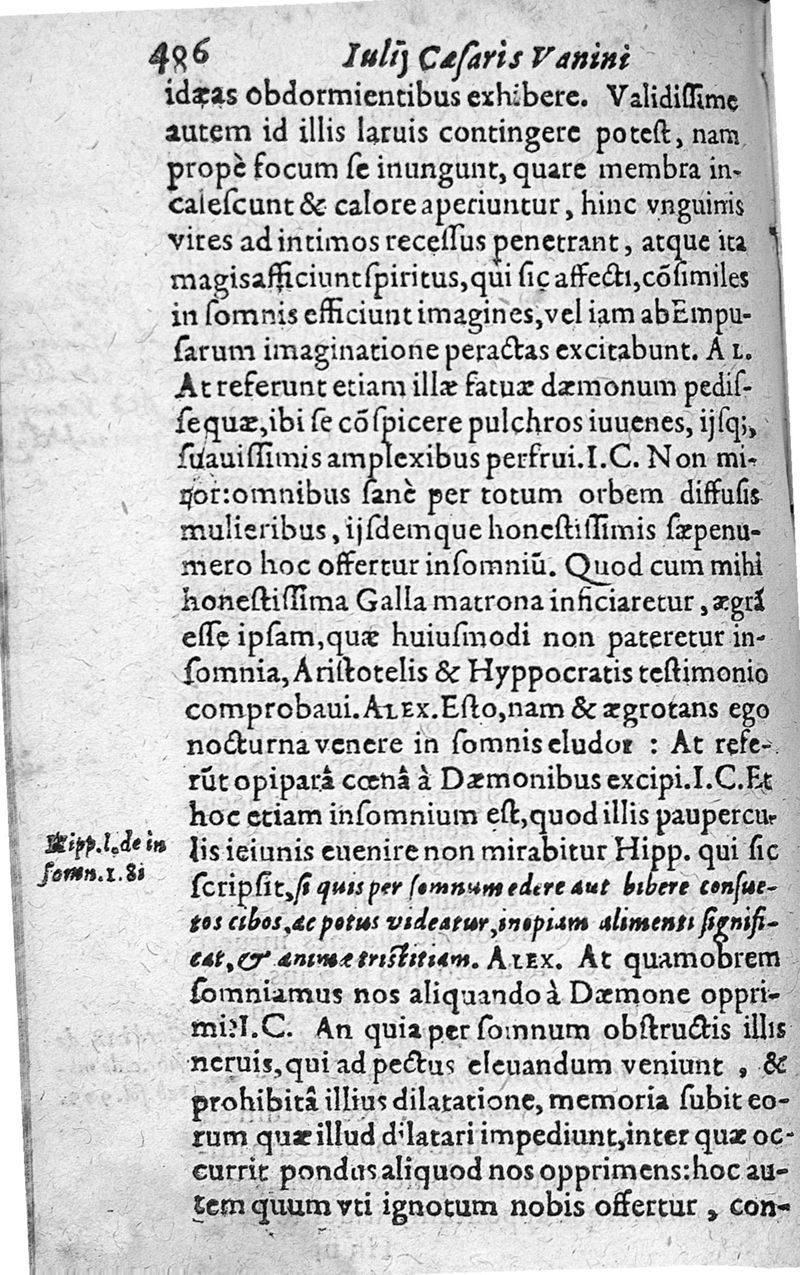 486 Iulij Cæſaris Vanini
idæas obdormientibus exhibere. Validiſſime
autem id illis laruis contingere poteſt, nam
propè focum ſe inungunt, quare membra in-
caleſcunt & calore aperiuntur, hinc vnguinis
vires ad intimos receſſus penetrant, atque ita
magis afficiunt ſpiritus, qui ſic affecti, cõſimiles
in ſomnis efficiunt imagines, vel iam ab Empu-
ſarum imaginatione peractas excitabunt. AL.
At referunt etiam illæ fatuæ dæmonum pediſ-
ſequæ, ibi ſe cõſpicere pulchros iuuenes, ijſq;,
ſuauiſſimis amplexibus perfrui. I.C. Non mi-
ror: omnibus ſanè per totum orbem diffuſis
mulieribus, ijſdemque honeſtiſſimis ſæpenu-
mero hoc offertur inſomniũ. Quod cum mihi
honeſtiſſima Galla matrona inficiaretur, ægrã
eſſe ipſam, quæ huiuſmodi non pateretur in-
ſomnia, Ariſtotelis & Hyppocratis teſtimonio
comprobaui. ALEX. Eſto, nam & ægrotans ego
nocturna venere in ſomnis eludor : At refe-
rũt opiparâ cœnâ à Dæmonibus excipi. I.C. Et
hoc etiam inſomnium eſt, quod illis paupercu-
Hipp. l. de in
ſomn. 1. 8i
lis ieiunis euenire non mirabitur Hipp. qui ſic
scripſit, ſi quis per ſomnum edere aut bibere conſue-
tos cibos, ac potus videatur, inopiam alimenti ſignifi-
cat, & animæ triſtitiam. ALEX. At quamobrem
ſomniamus nos aliquando à Dæmone oppri-
mi? I.C. An quia per ſomnum obſtructis illis
neruis, qui ad pectus eleuandum veniunt, &
prohibitâ illius dilatatione, memoria ſubit eo-
rum quæ illud dilatari impediunt, inter quæ oc-
currit pondus aliquod nos opprimens: hoc au-
tem quum vti ignotum nobis offertur, con-